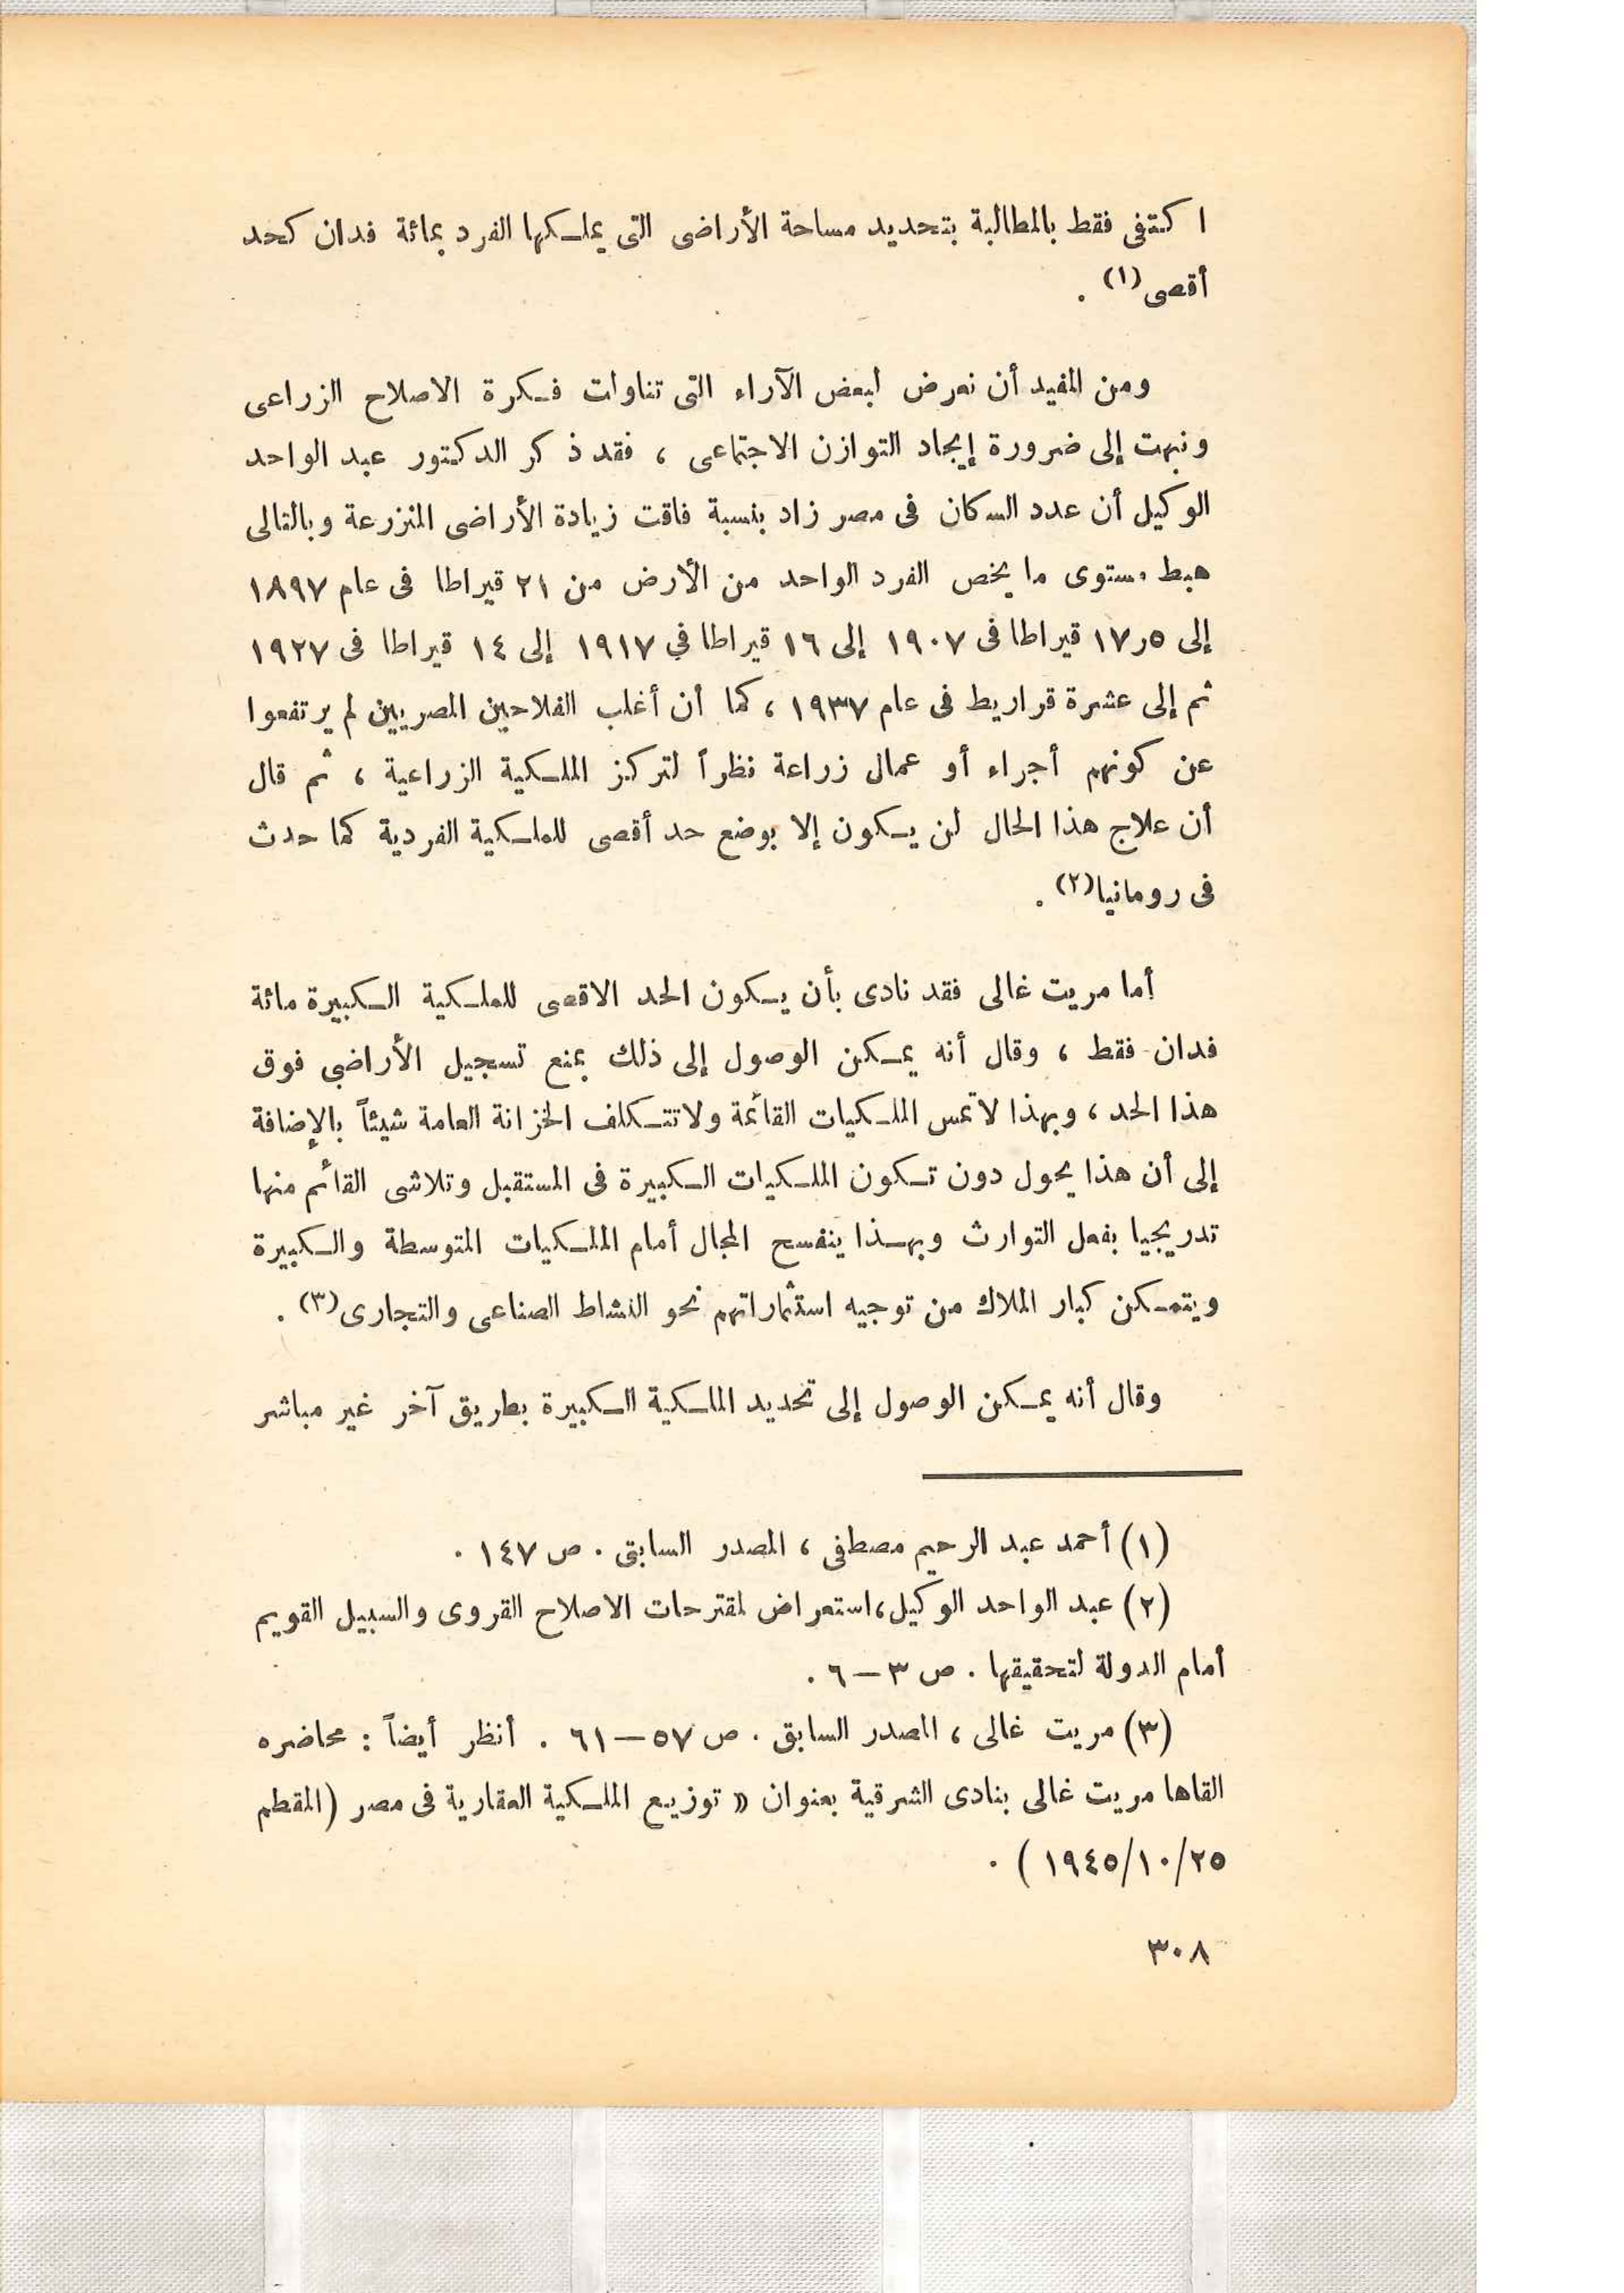 اكتفى فقط بالمطالبة بتحديد مساحة الأراضى التى يملكها الفرد بمائة فدان كحد
أقصى(١) .
ومن المفيد أن نعرض لبعض الآراء التى تناولت فكرة الاصلاح الزراعى
ونبهت إلى ضرورة إيجاد التوازن الاجتماعى ، فقد ذكر الدكتور عبد الواحد
الوكيل أن عدد السكان فى مصر زاد بنسبة فاقت زيادة الأراضى المنزرعة وبالتالى
هبط مستوى ما يخص الفرد الواحد من الأرض من ٢١ قيراطا فى عام ١٨٩٧
إلى ٥ر١٧ قيراطا فى ١٩٠٧ إلى ١٦ قيراطا في ١٩١٧ إلى ١٤ قيراطا فى ١٩٢٧
ثم إلى عشرة قراريط فى عام ١٩٣٧ ، كما أن أغلب الفلاحين المصريين لم يرتفعوا
عن كونهم أجراء أو عمال زراعة نظراً لتركيز الملكية الزراعية ، ثم قال
أن علاج هذا الحال لن يكون إلا بوضع حد أقصى للملكية الفردية كما حدث
فى رومانيا(٢) .
أما مريت غالى فقد نادى بأن يكون الحد الاقصى للملكية الكبيرة مائة
فدان فقط ، وقال أنه يمكن الوصول إلى ذلك بمنع تسجيل الأراضي فوق
هذا الحد ، وبهذا لا تمس الملكيات القائمة ولا تتكلف الخزانة العامة شيئاً بالإضافة
إلى أن هذا يحول دون تكون الملكيات الكبيرة فى المستقبل وتلاشى القائم منها
تدريجيا بفعل التوارث وبهذا ينفسح المجال أمام الملكيات المتوسطة والكبيرة
ويتمكن كبار الملاك من توجيه استثماراتهم نحو النشاط الصناعى والتجارى(٣) .
وقال أنه يمكن الوصول إلى تحديد الملكية الكبيرة بطريق آخر غير مباشر
(١) أحمد عبد الرحيم مصطفى ، المصدر السابق . ص ١٤٧ .
(٢) عبد الواحد الوكيل،استعراض لمقترحات الاصلاح القروى والسبيل القويم
أمام الدولة لتحقيقها . ص ٣ – ٦ .
(٣) مريت غالى ، المصدر السابق . ص ٥٧ – ٦١ . أنظر أيضاً : محاضره
القاها مريت غالى بنادى الشرقية بعنوان « توزيع الملكية العقارية فى مصر (المقطم
٢٥/١٠/١٩٤٥ ) .
٣٠٨